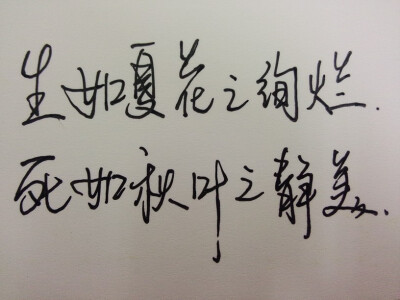 生如夏花之绚烂.
死如秋叶之静美.